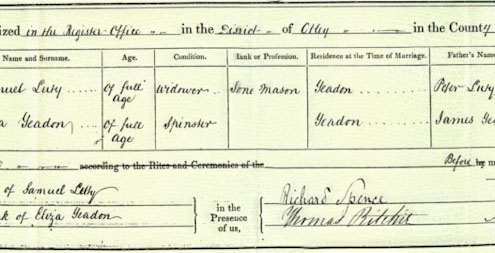 ized in the Register Office in the District of Otley in the County
Name and Surname. Age. Condition. Rank or Profession. Residence at the Time of Marriage. Father's Name
muel Luty of full age Widower Stone Mason Yeadon Peter Luty
a Yeadon of full age Spinster Yeadon James Yea
according to the Rites and Ceremonies of the Before by m
of Samuel Luty
k of Eliza Yeadon
in the
Presence
of us,
Richard Spence
Thomas Ritchie